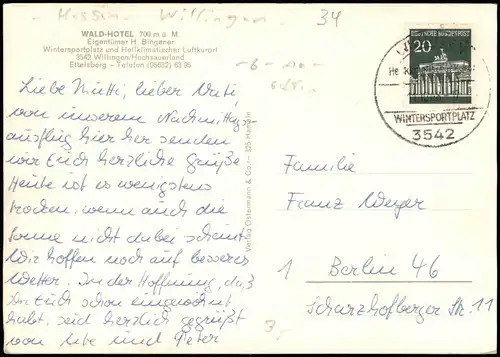 Hessen Willingen
34
WALD-HOTEL 700 m ü. M.
Eigentümer H. Bingener
Wintersportplatz und Heilklimatischer Luftkurort
3542 Willingen/Hochsauerland
Ettelsberg – Telefon (05632) 6396
DEUTSCHE BUNDESPOST
20
WINTERSPORTPLATZ
3542
Liebe Mutti, lieber Vati
von unserem Nachmittags-
ausflug hier her senden
wir Euch herzliche Grüße
Heute ist es wenigstens
trocken, wenn auch die
Sonne nicht dabei scheint
Wir hoffen noch auf besseres
Wetter. In der Hoffnung, daß
Ihr Euch schon eingewöhnt
habt, seid herzlich gegrüßt
von Ute und Peter
Verlag Ostermann & Co. – 325 Hameln
Familie
Franz Weyer
1 Berlin 46
Scharzhofberger Str. 11